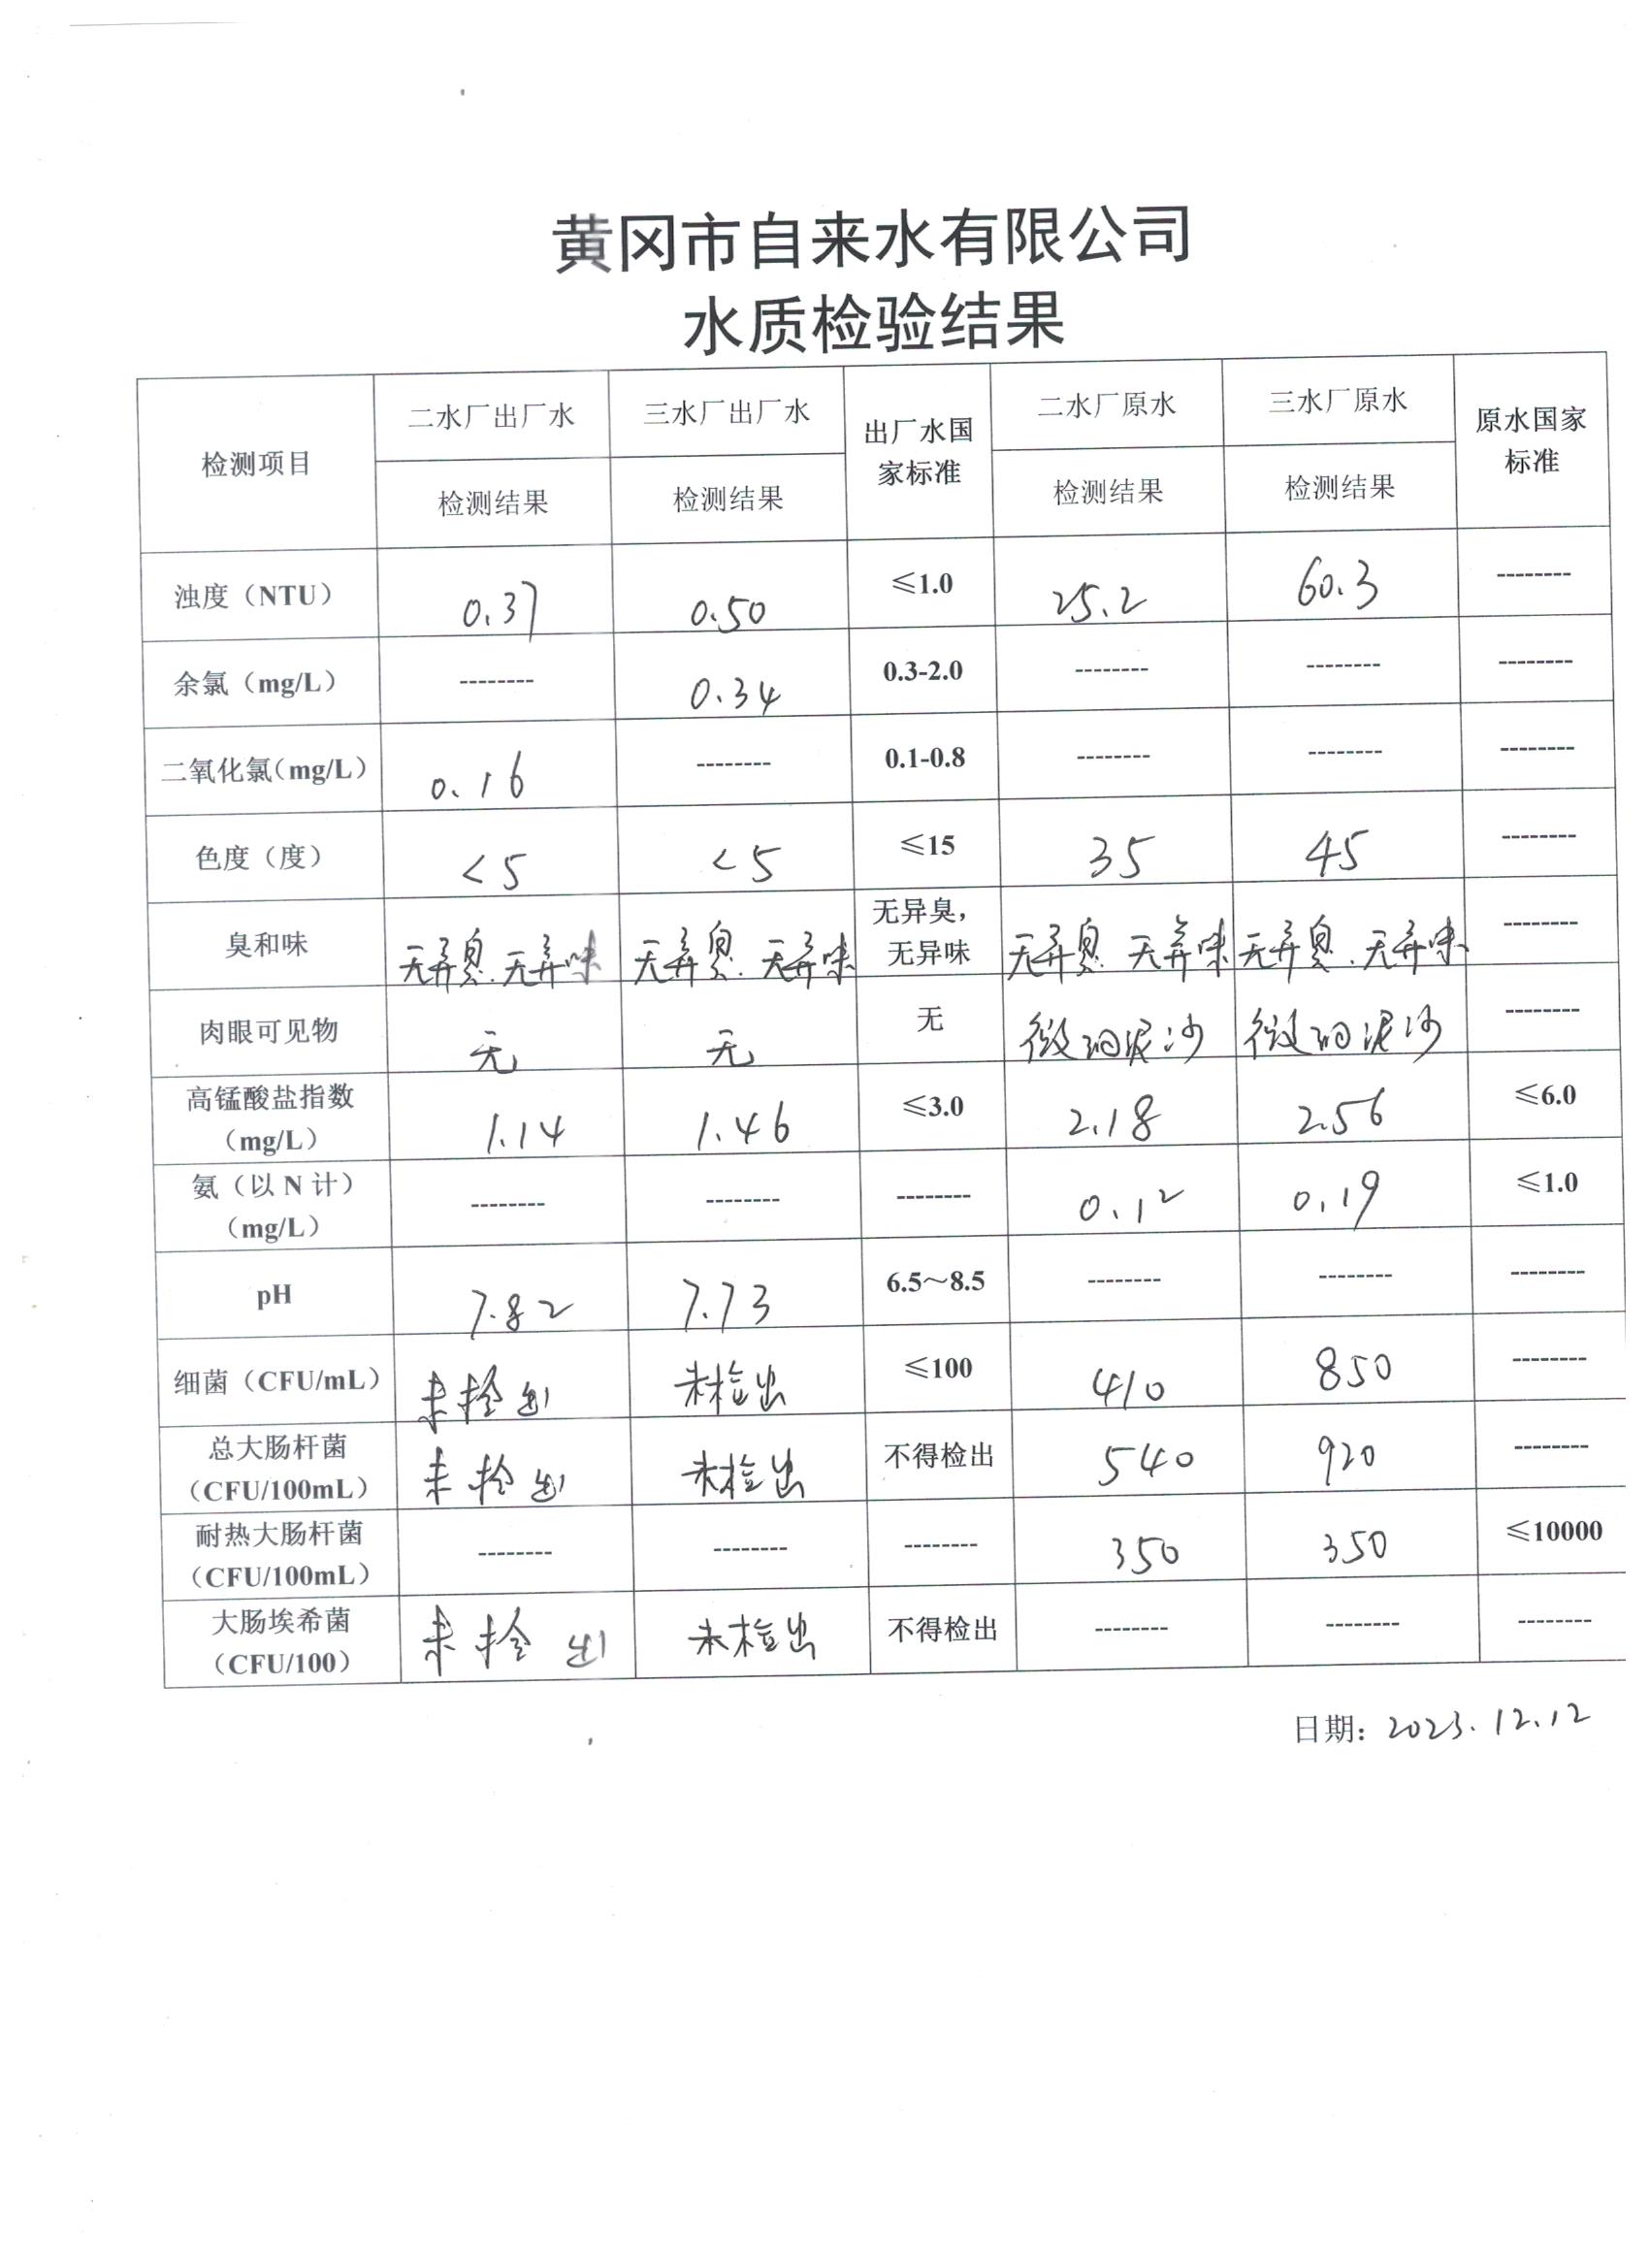 黄冈市自来水有限公司
水质检验结果
检测项目 二水厂出厂水 三水厂出厂水 出厂水国家标准 二水厂原水 三水厂原水 原水国家标准
检测结果 检测结果 检测结果 检测结果
浊度（NTU） 0.37 0.50 ≤1.0 25.2 60.3 --------
余氯（mg/L） -------- 0.34 0.3-2.0 -------- -------- --------
二氧化氯（mg/L） 0.16 -------- 0.1-0.8 -------- -------- --------
色度（度） <5 <5 ≤15 35 45 --------
臭和味 无异臭.无异味 无异臭.无异味 无异臭，无异味 无异臭.无异味 无异臭.无异味 --------
肉眼可见物 无 无 无 微细泥沙 微细泥沙 --------
高锰酸盐指数（mg/L） 1.14 1.46 ≤3.0 2.18 2.56 ≤6.0
氨（以 N 计）（mg/L） -------- -------- -------- 0.12 0.19 ≤1.0
pH 7.82 7.73 6.5～8.5 -------- -------- --------
细菌（CFU/mL） 未检出 未检出 ≤100 410 850 --------
总大肠杆菌（CFU/100mL） 未检出 未检出 不得检出 540 920 --------
耐热大肠杆菌（CFU/100mL） -------- -------- -------- 350 350 ≤10000
大肠埃希菌（CFU/100） 未检出 未检出 不得检出 -------- -------- --------
日期：2023.12.12